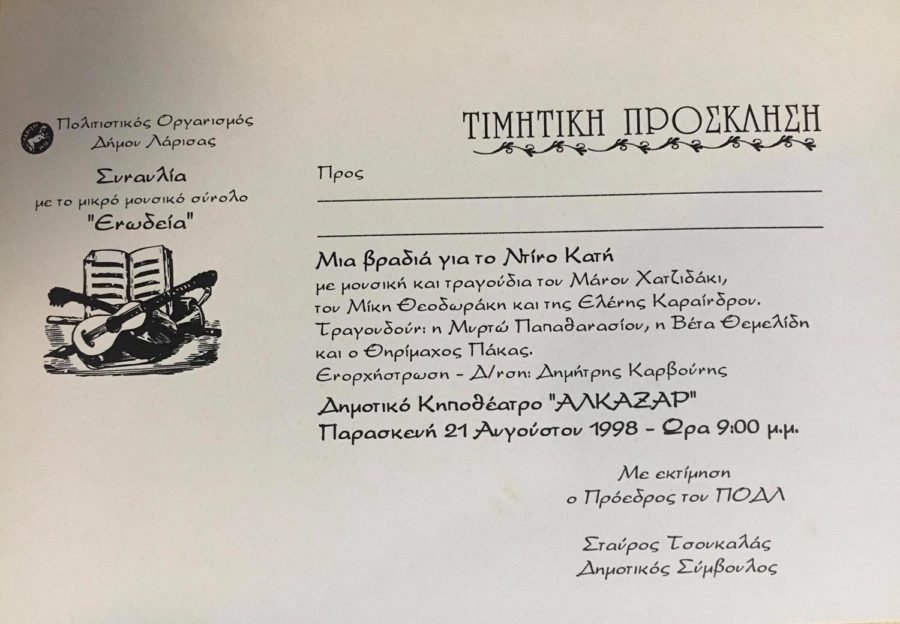 Πολιτιστικός Οργανισμός
Δήμου Λάρισας
Συναυλία
με το μικρό μουσικό σύνολο
"Ενωδεία"
ΤΙΜΗΤΙΚΗ ΠΡΟΣΚΛΗΣΗ
Προς
Μια βραδιά για το Ντίνο Κατή
με μουσική και τραγούδια του Μάνου Χατζιδάκι,
του Μίκη Θεοδωράκη και της Ελένης Καραΐνδρου.
Τραγουδούν: η Μυρτώ Παπαθανασίου, η Βέτα Θεμελίδη
και ο Θηρίμαχος Πάκας.
Ενορχήστρωση - Δ/νση: Δημήτρης Καρβούνης
Δημοτικό Κηποθέατρο "ΑΛΚΑΖΑΡ"
Παρασκευή 21 Αυγούστου 1998 - Ωρα 9:00 μ.μ.
Με εκτίμηση
ο Πρόεδρος του ΠΟΔΛ
Σταύρος Τσουκαλάς
Δημοτικός Σύμβουλος